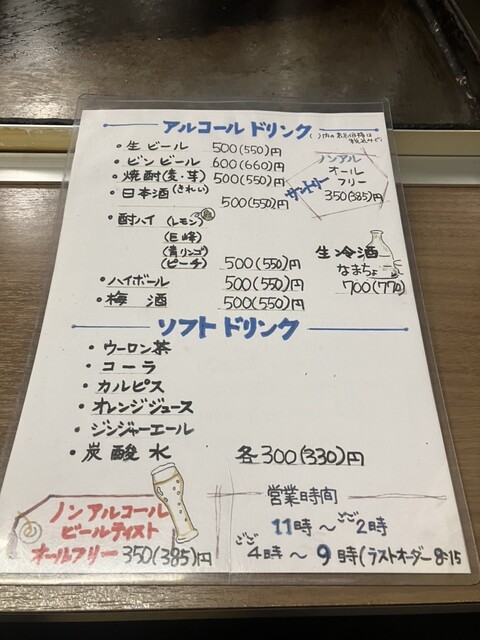 アルコールドリンク
( )内のお会計時は
税込みです
・生ビール 500(550)円
・ビンビール 600(660)円
・焼酎(麦・芋) 500(550)円
・日本酒(きれい) 500(550)円
・酎ハイ(レモン)
(巨峰)
(青リンゴ)
(ピーチ) 500(550)円
・ハイボール 500(550)円
・梅酒 500(550)円
ノンアル
オール
フリー
サントリー
350(385)円
生冷酒
なまちょ
700(770)
ソフトドリンク
・ウーロン茶
・コーラ
・カルピス
・オレンジジュース
・ジンジャーエール
・炭酸水 各300(330)円
ノンアルコール
ビールテイスト
オールフリー 350(385)円
営業時間
11時〜ごご2時
ごご4時〜9時(ラストオーダー8:15